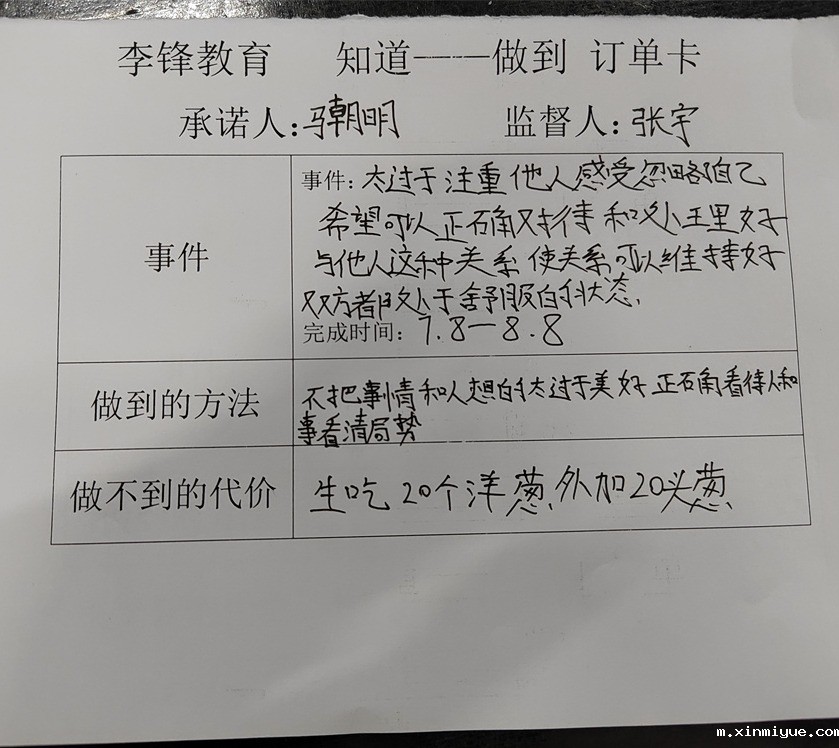 李锋教育 知道——做到 订单卡
承诺人：马朝明 监督人：张宇
事件
事件：太过于注重他人感受忽略自己
希望可以正确对待和处理好
与他人这种关系使关系可以维持好
双方都处于舒服的状态.
完成时间：7.8—8.8
做到的方法
不把事情和人想的太过于美好 正确看待人和
事看清局势
做不到的代价
生吃20个洋葱.外加20头葱.
m.xinmiyue.com